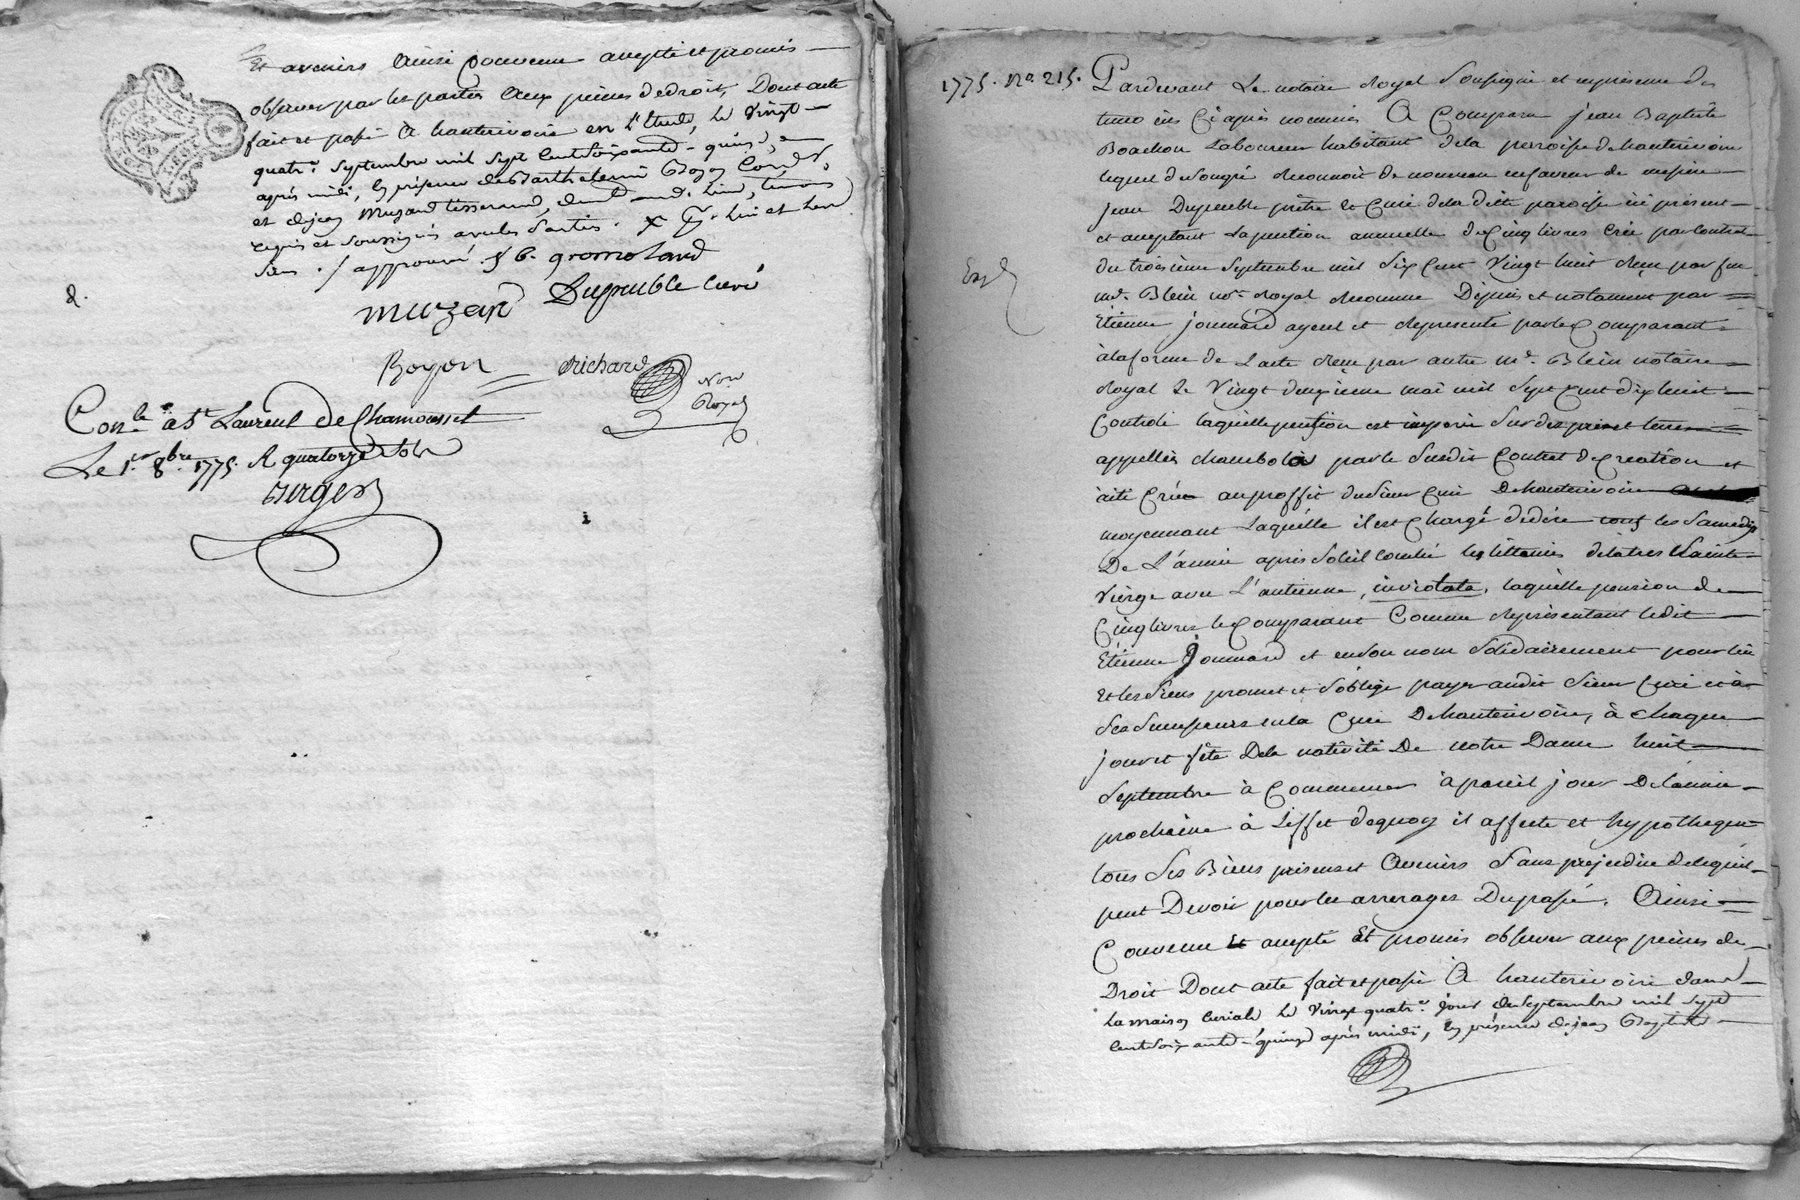 Et avenirs Ainsi Convenu accepté et promis
observer par les parties aux peines de droit, Dont acte
fait et passé à hauterivoire en l'Etude, le vingt
quatre. septembre mil sept Cent soixante-quinze,
après midi, En présence de Barthelemi Boyon Cord.r
et de jean Muzard tisserand, dud. lieu, témoins
requis et soussignés avec les parties.
/ approuvé
gromoland
muzard Dupeuble curé
Boyon Richard Not.re
Royal
Con.le à S.t Laurent de Chamousset
Le 1.er 8.bre 1775. R quatorze sols
Berger
1775. No. 215. Pardevant Le notaire Royal Soussigné et en présence des
temoins Ci après nommés A Comparu jean Baptiste
Boachon Laboureur habitant de la parroisse de hauterivoire
lequel de son gré Reconnoit de nouveau en faveur de messire
jean Dupeuble prêtre et Curé de la ditte paroisse ici présent
et acceptant La pention annuelle de Cinq livres Crée par Contrat
du troisieme Septembre mil Six Cent vingt huit Reçu par feu
m.e Blein no.re Royal Reconnue Depuis et notament par
Etienne jonnard ayeul et Representé par le Comparant
à la forme de L'acte Reçu par autre m.e Blein notaire
Royal Le vingt deuxieme mai mil Sept Cent dix huit
Controlé laquelle pension est imposée Sur des prés et terres
appellés chambola par le Susdit Contrat de Création et
a été Créé au proffit du Sieur Curé De hauterivoire
moyennant Laquelle il est Chargé de dire tous les Samedys
De L'année après Soleil couché les littanies de la très Sainte
vierge avec L'antienne, inviolata, laquelle pension de
Cinq livres le Comparant Comme Representant ledit
Etienne Jonnard et en son nom Solidairement pour lui
et les Siens promet et S'oblige payer audit Sieur Curé et à
Ses Successeurs en la Cure De hauterivoire, à chaque
jour et fête De la nativité De notre Dame huit
Septembre à Commencer à pareil jour De L'année
prochaine à L'effet de quoy il affecte et hypotheque
tous Ses Biens présens et Avenirs Sans prejudice de ce qu'il
peut Devoir pour les arrerages Du passé. Ainsi
Convenu Et accepté Et promis observer aux peines de
Droit Dont acte fait et passé A hauterivoire dans
La maison Curiale le vingt quatr.e jour de Septembre mil Sept
Cent Soixante-quinze après midi, En présence de jean Baptiste